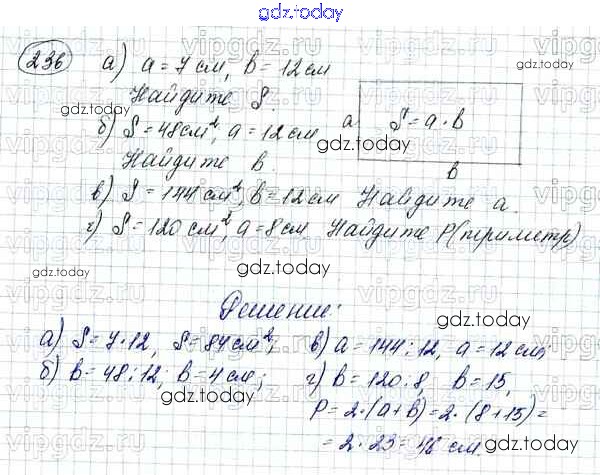 gdz.today
236 а) a = 7 см, b = 12 см
Найдите S.
б) S = 48 см², a = 12 см
Найдите b.
a S = a · b
b
в) S = 144 см², b = 12 см Найдите a.
г) S = 120 см², a = 8 см Найдите P (периметр)
Решение:
а) S = 7 · 12, S = 84 см²;
б) b = 48 : 12, b = 4 см;
в) a = 144 : 12, a = 12 см;
г) b = 120 : 8, b = 15,
P = 2 · (a + b) = 2 · (8 + 15) =
= 2 · 23 = 46 см.
gdz.today
gdz.today
gdz.today
gdz.today
gdz.today
gdz.today
gdz.today
gdz.today
vipgdz.ru